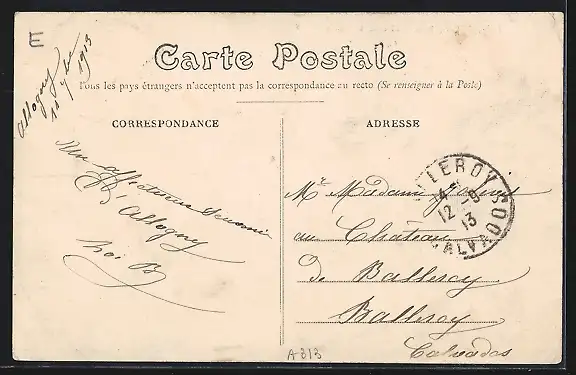 E
Allogny
1913
Carte Postale
Tous les pays étrangers n'acceptent pas la correspondance au recto (Se renseigner à la Poste)
CORRESPONDANCE
ADRESSE
affectueux Souvenir
d'Allogny
Mr Madame
au Château
de Balleroy
Balleroy
Calvados
LEROY
12-9
13
CALVADOS
A 313